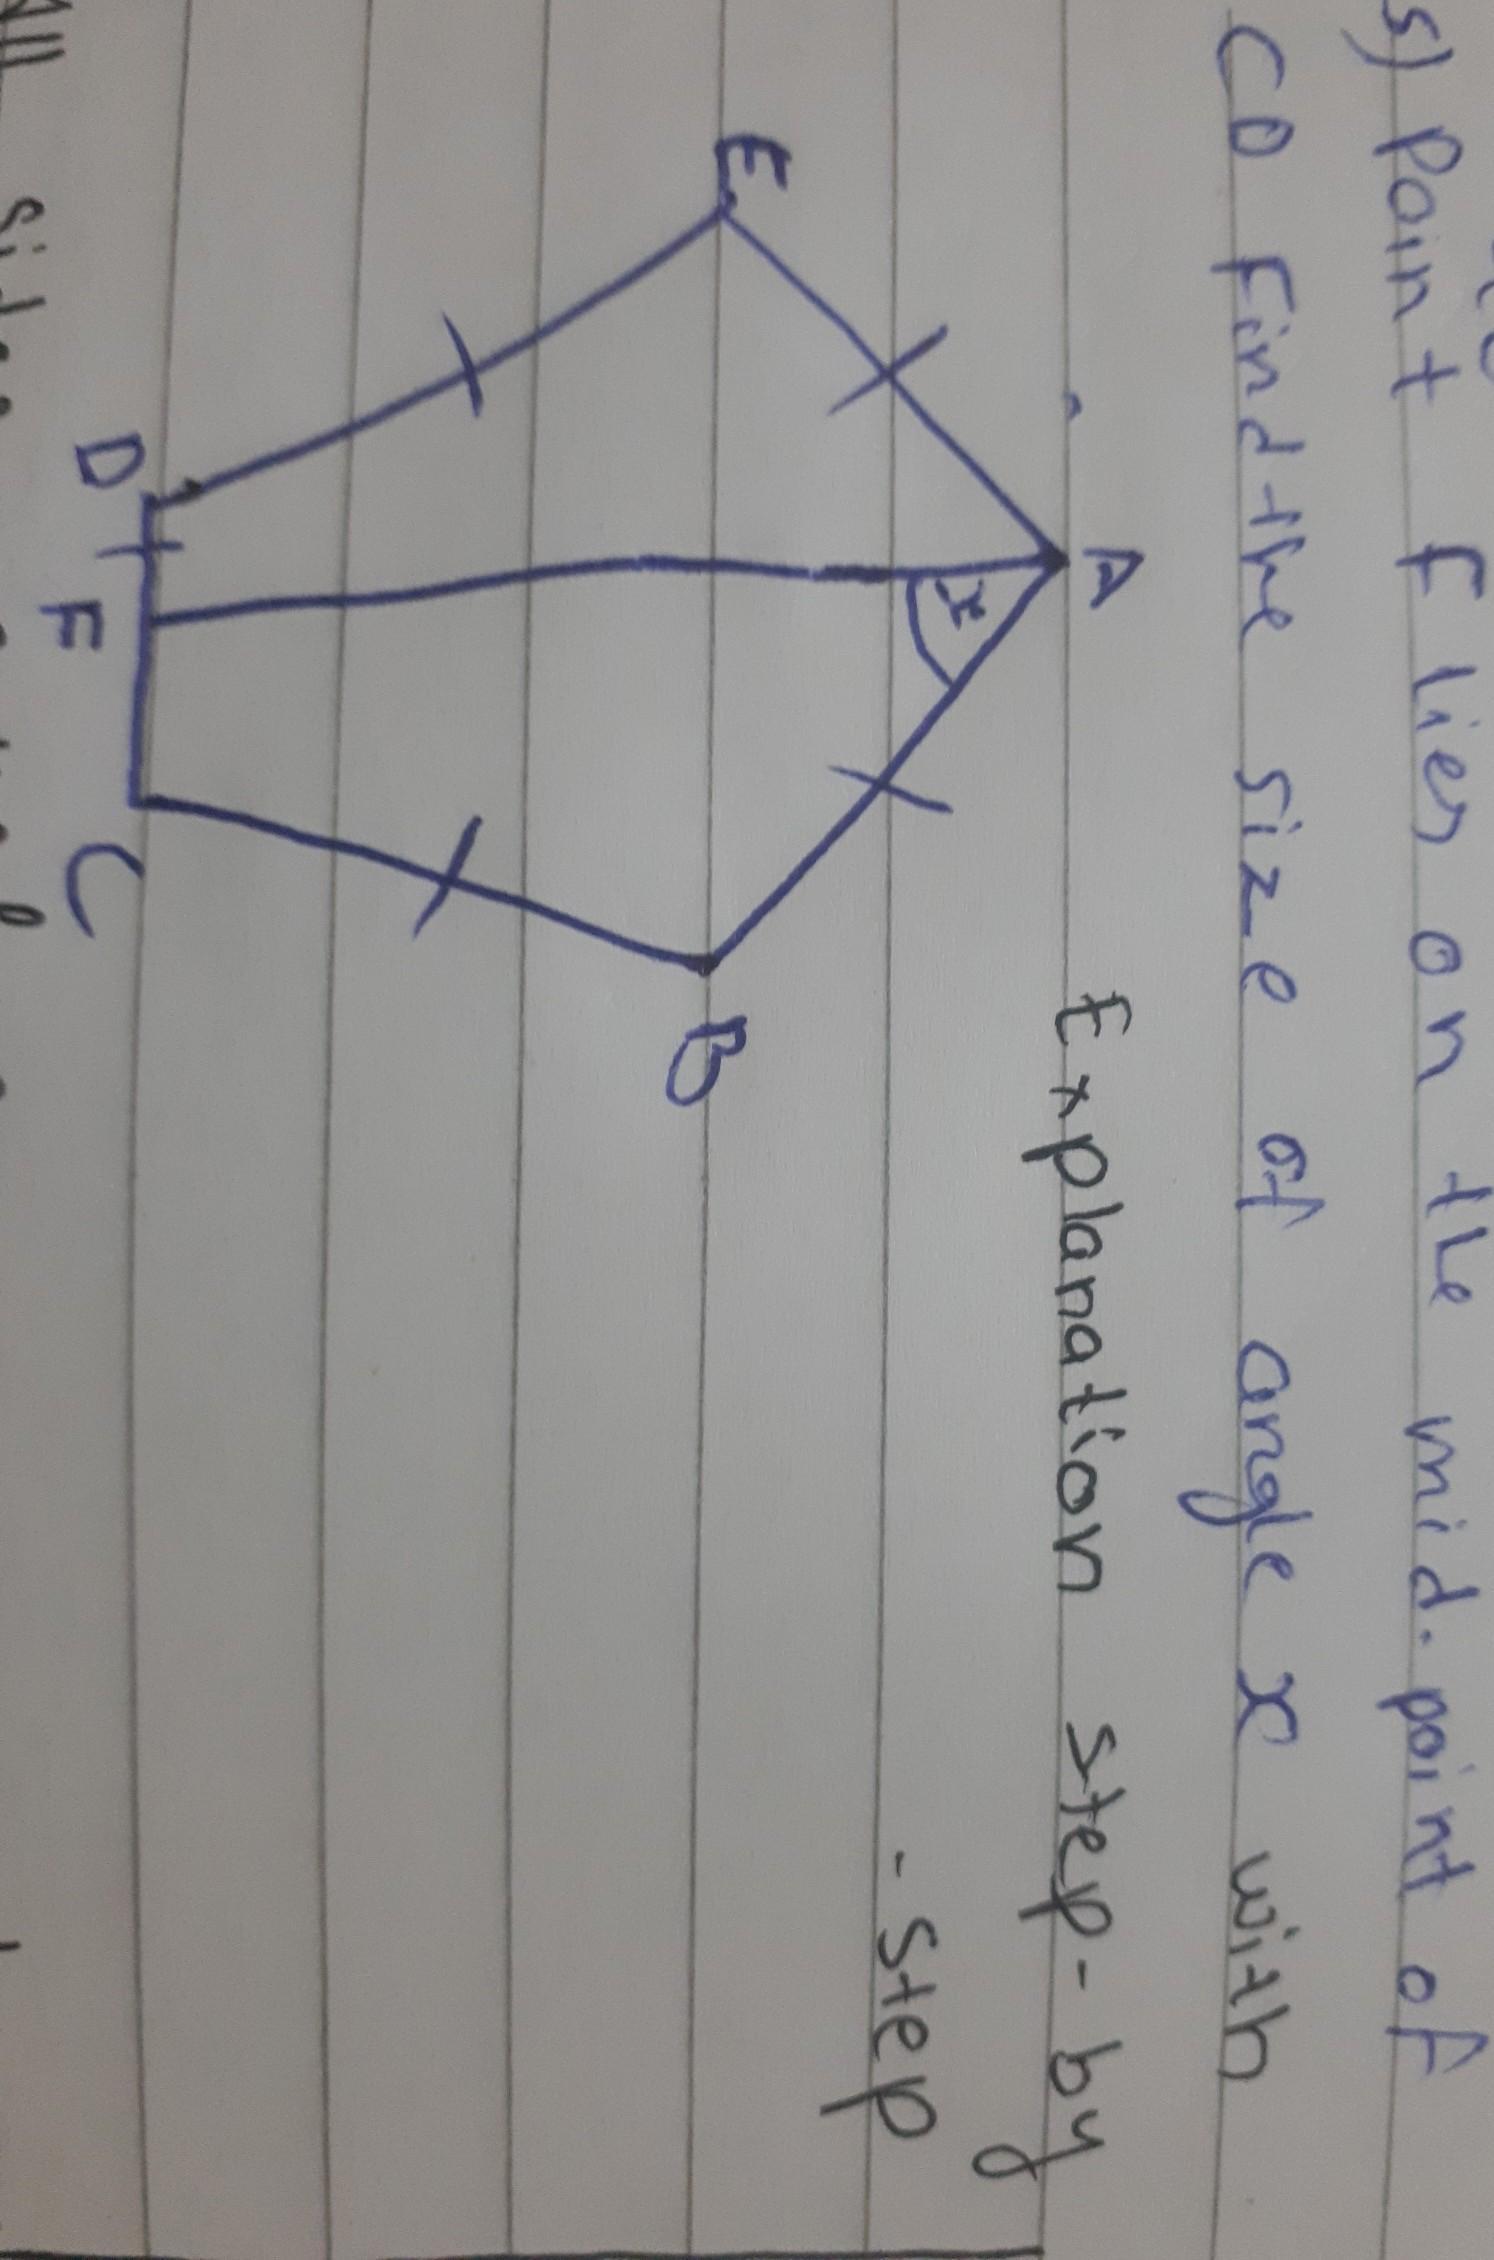 5) Point F lies on the mid-point of
CD Find the size of angle x with
Explanation step-by
-step
A
x
E
B
D
F
C
All sides